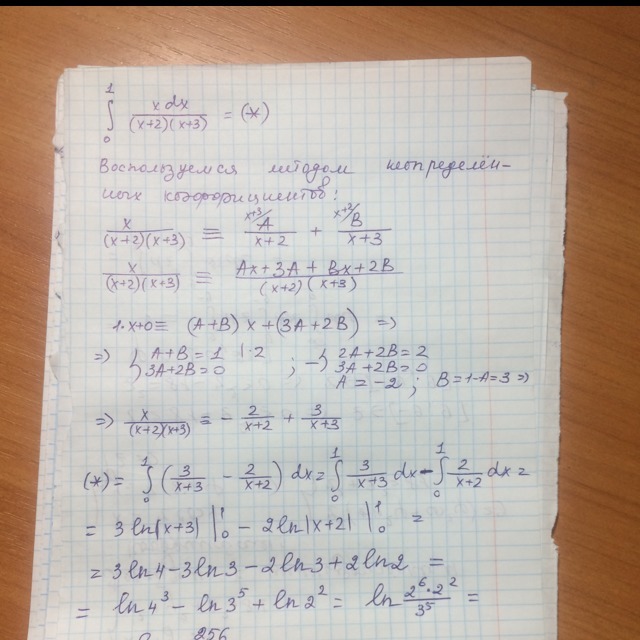 ∫₀¹ x dx / ((x+2)(x+3)) = (*)
Воспользуемся методом неопределён-
ных коэффициентов:
x / ((x+2)(x+3)) ≡ ˣ⁺³/A / (x+2) + ˣ⁺²/B / (x+3)
x / ((x+2)(x+3)) ≡ (Ax+3A + Bx+2B) / ((x+2)(x+3))
1·x+0 ≡ (A+B)x + (3A+2B) =>
=> { A+B = 1 |·2 ; -} 2A+2B = 2
3A+2B = 0 3A+2B = 0
A = -2 ; B = 1-A = 3 =>
=> x / ((x+2)(x+3)) = - 2/(x+2) + 3/(x+3)
(*) = ∫₀¹ (3/(x+3) - 2/(x+2)) dx = ∫₀¹ 3/(x+3) dx - ∫₀¹ 2/(x+2) dx =
= 3 ln|x+3| |₀¹ - 2 ln|x+2| |₀¹ =
= 3 ln 4 - 3 ln 3 - 2 ln 3 + 2 ln 2 =
= ln 4³ - ln 3⁵ + ln 2² = ln (2⁶·2²)/3⁵ =
256